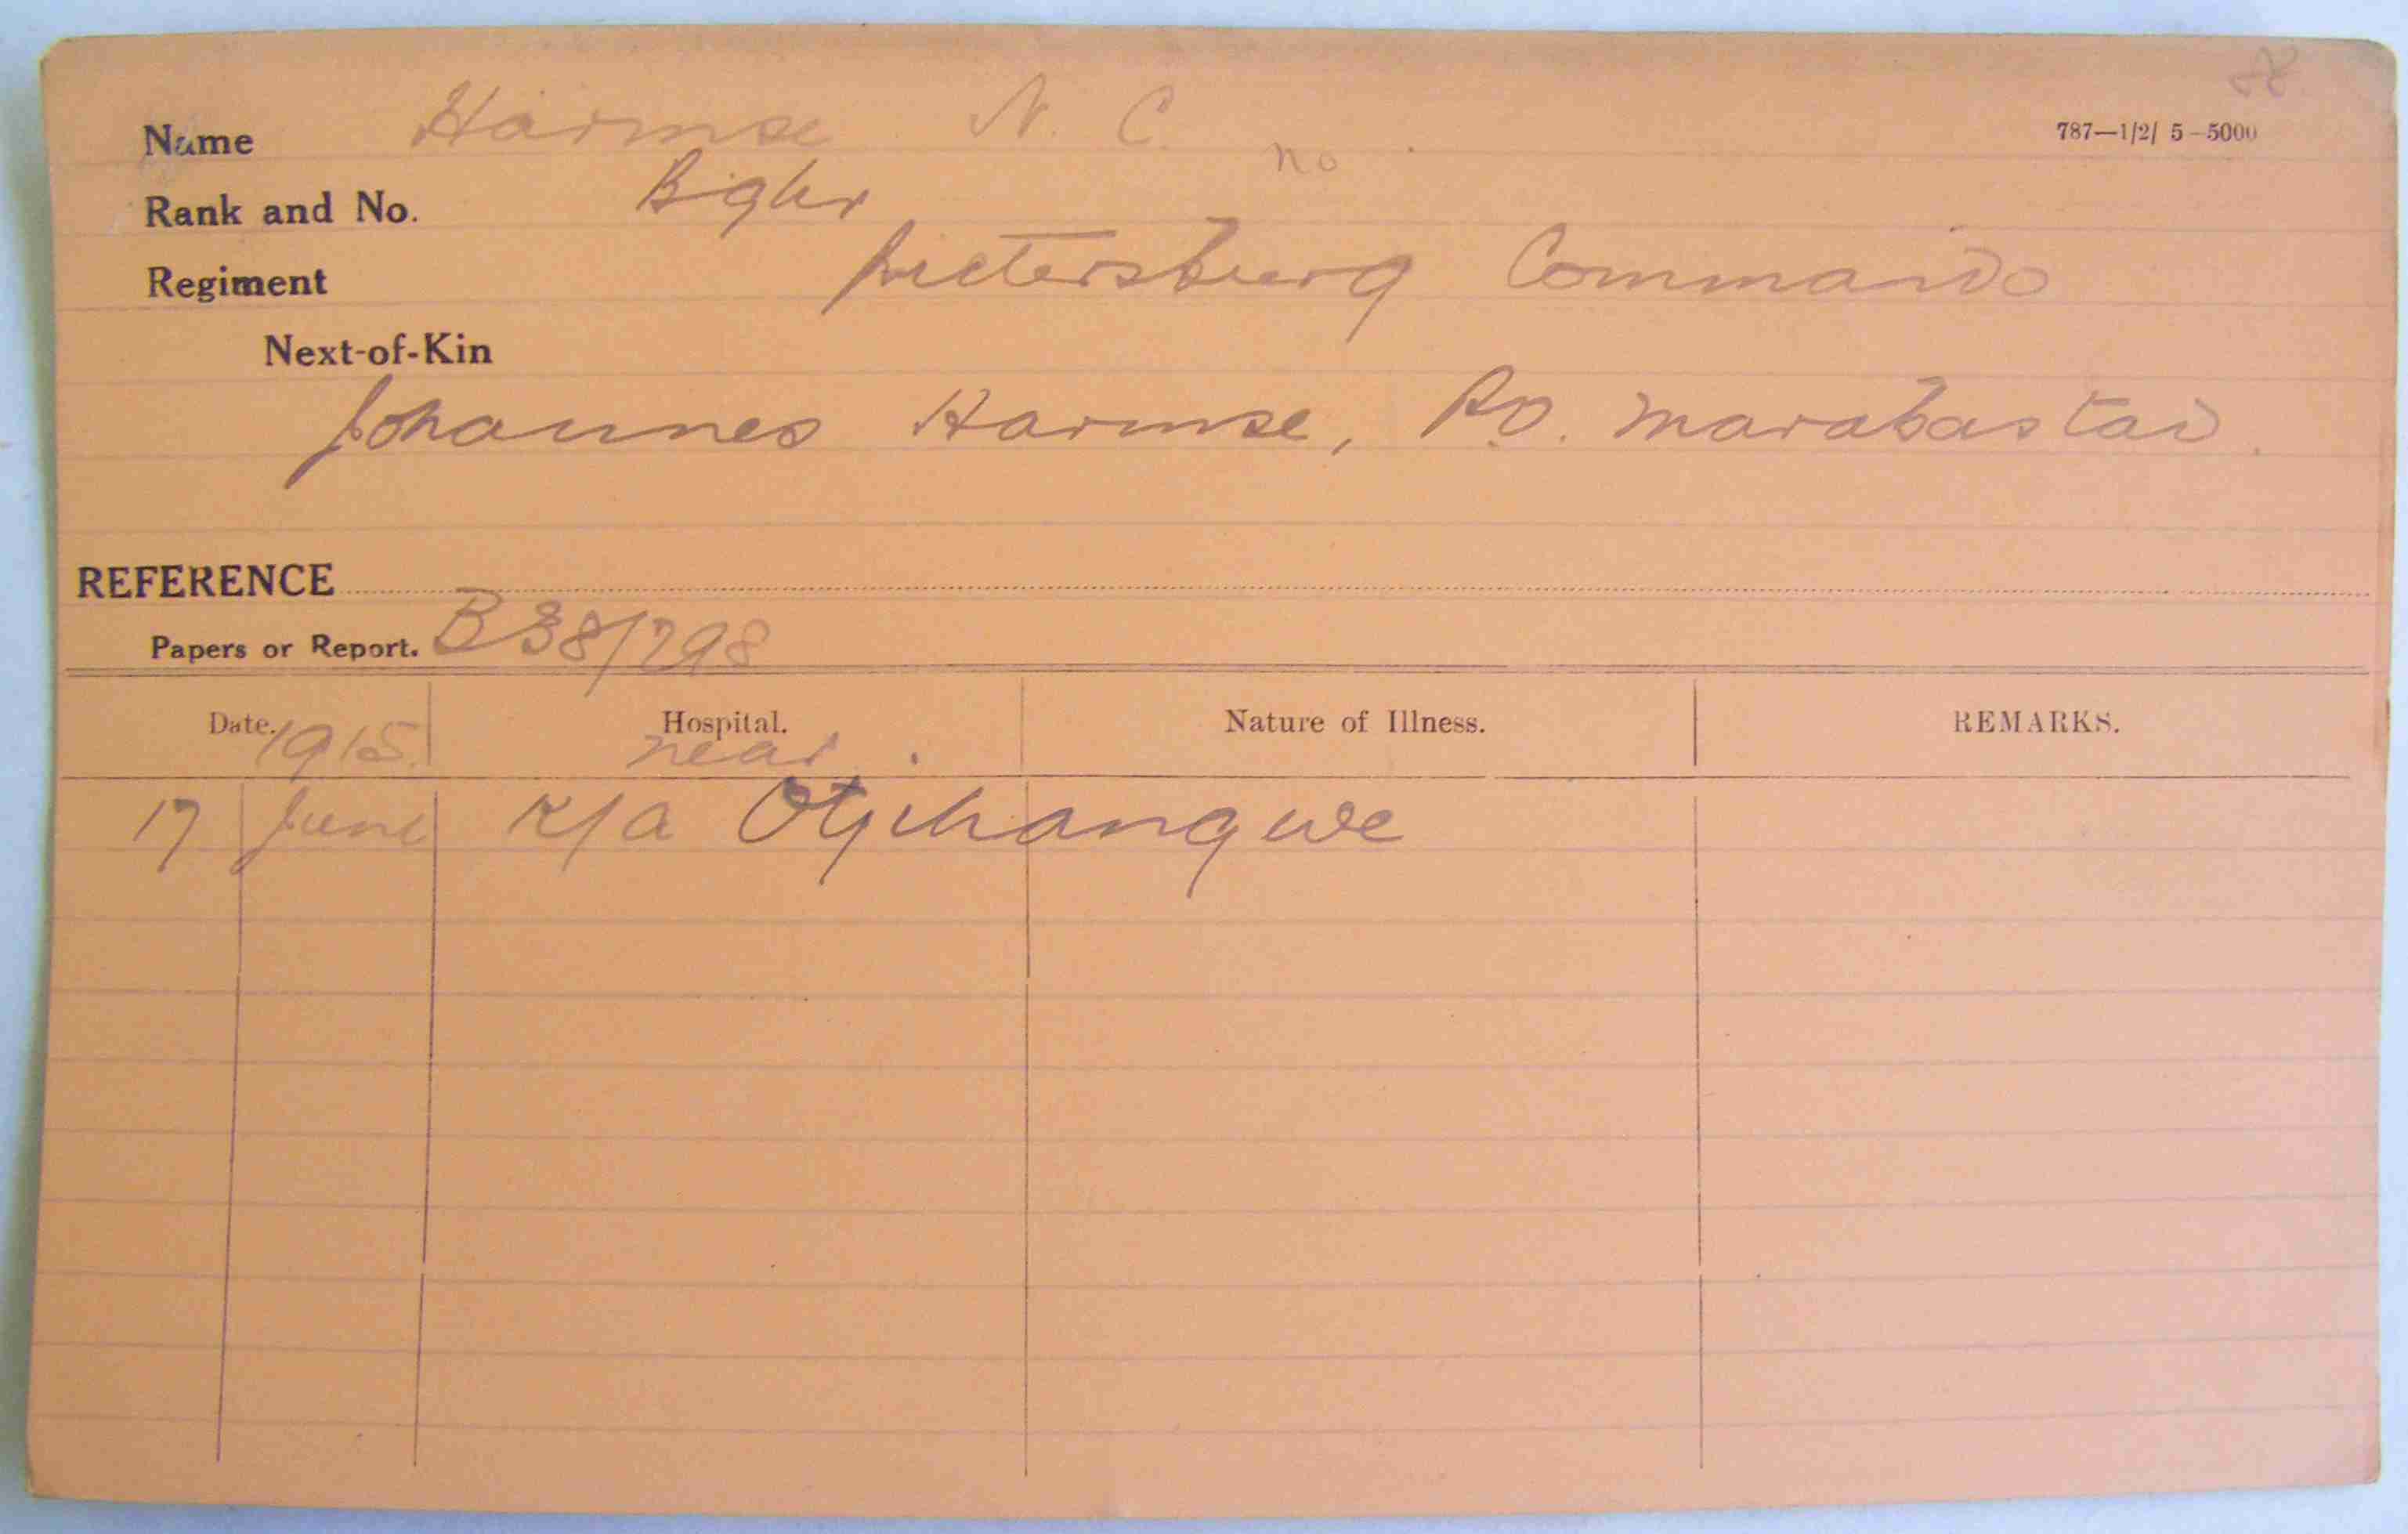 Name Harmse N. C.
787—1/2/ 5—5000
no.
Rank and No. Bghr
Regiment Pietersburg Commando
Next-of-Kin
Johannes Harmse, P.O. Marabastad.
REFERENCE
Papers or Report. B38/798
Date. 1915. Hospital. Nature of Illness. REMARKS.
near
17 June K/a Otjihangwe